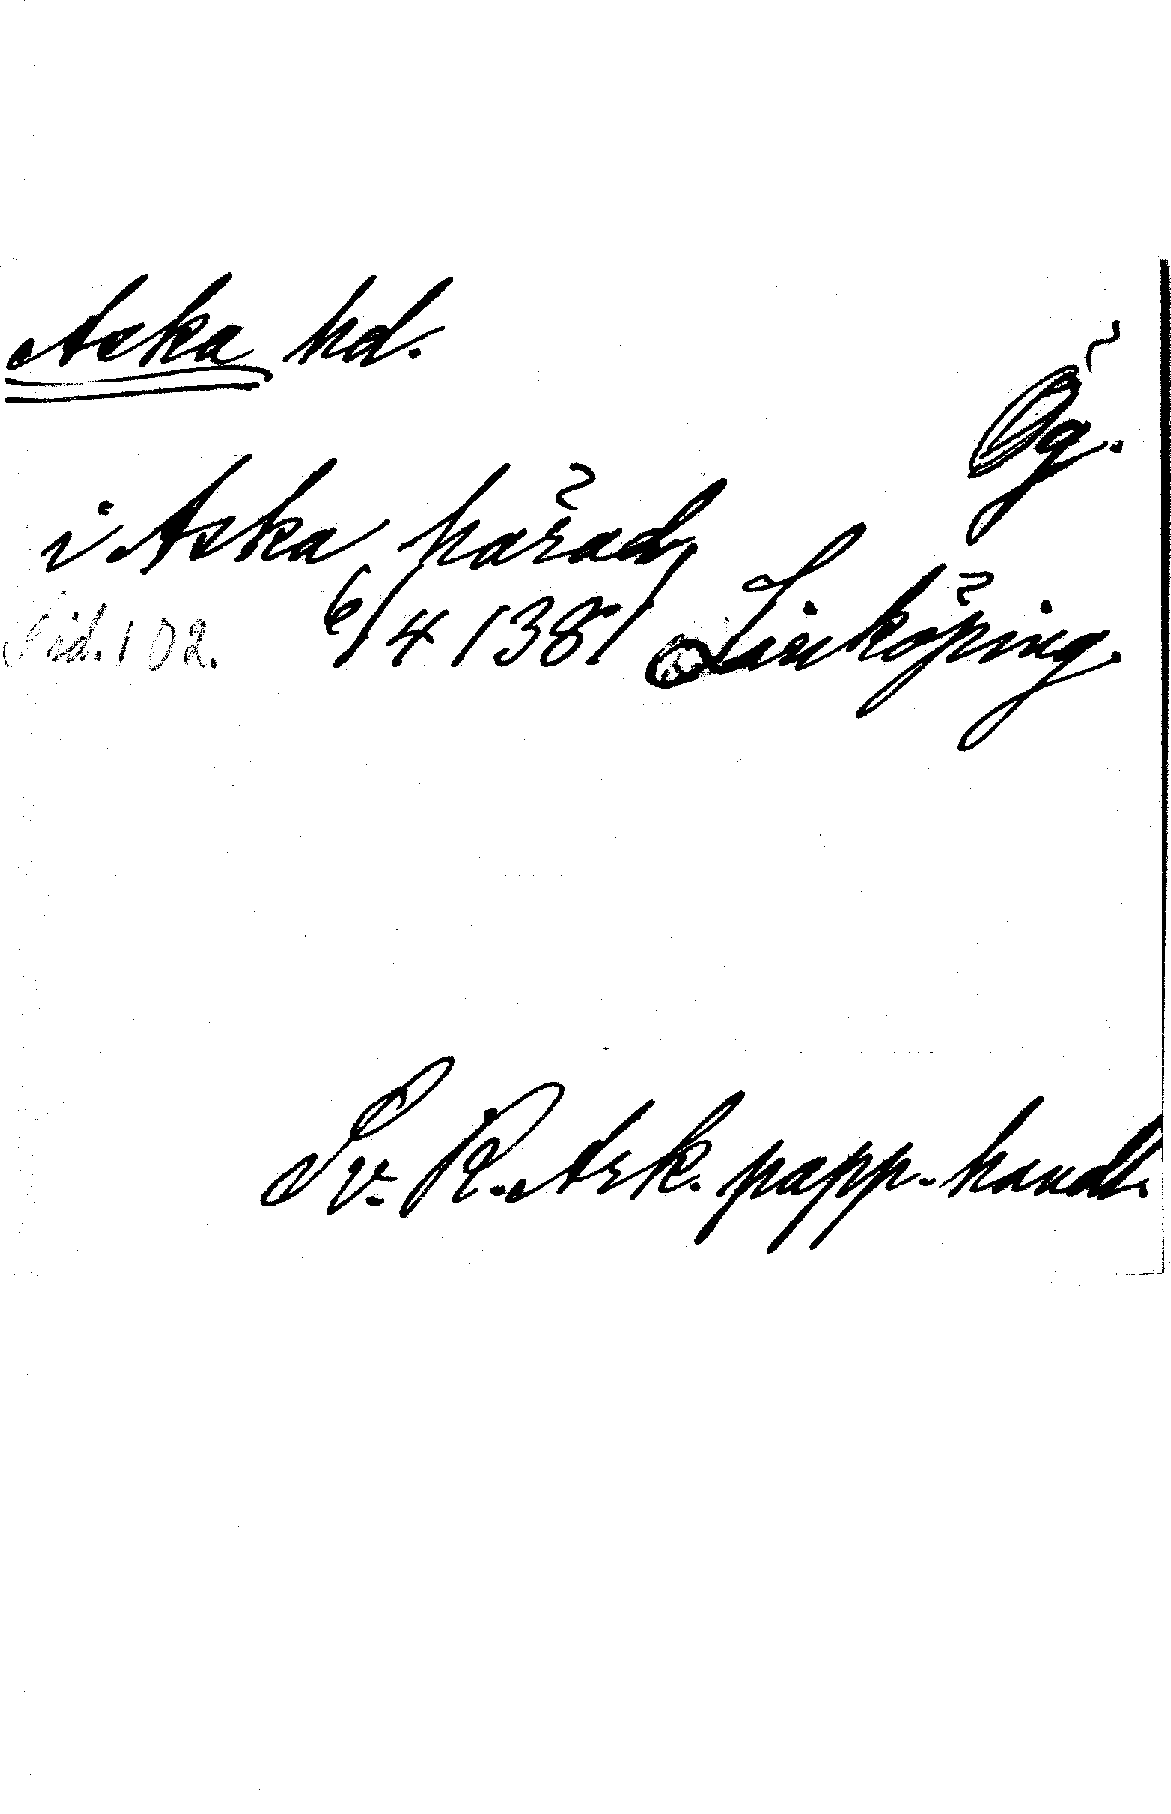 Aska hd.
Ög.
i Aska härad
Sid. 102. 6/4 1381 Linköping.
Sv. R. Ark. papp. handl.